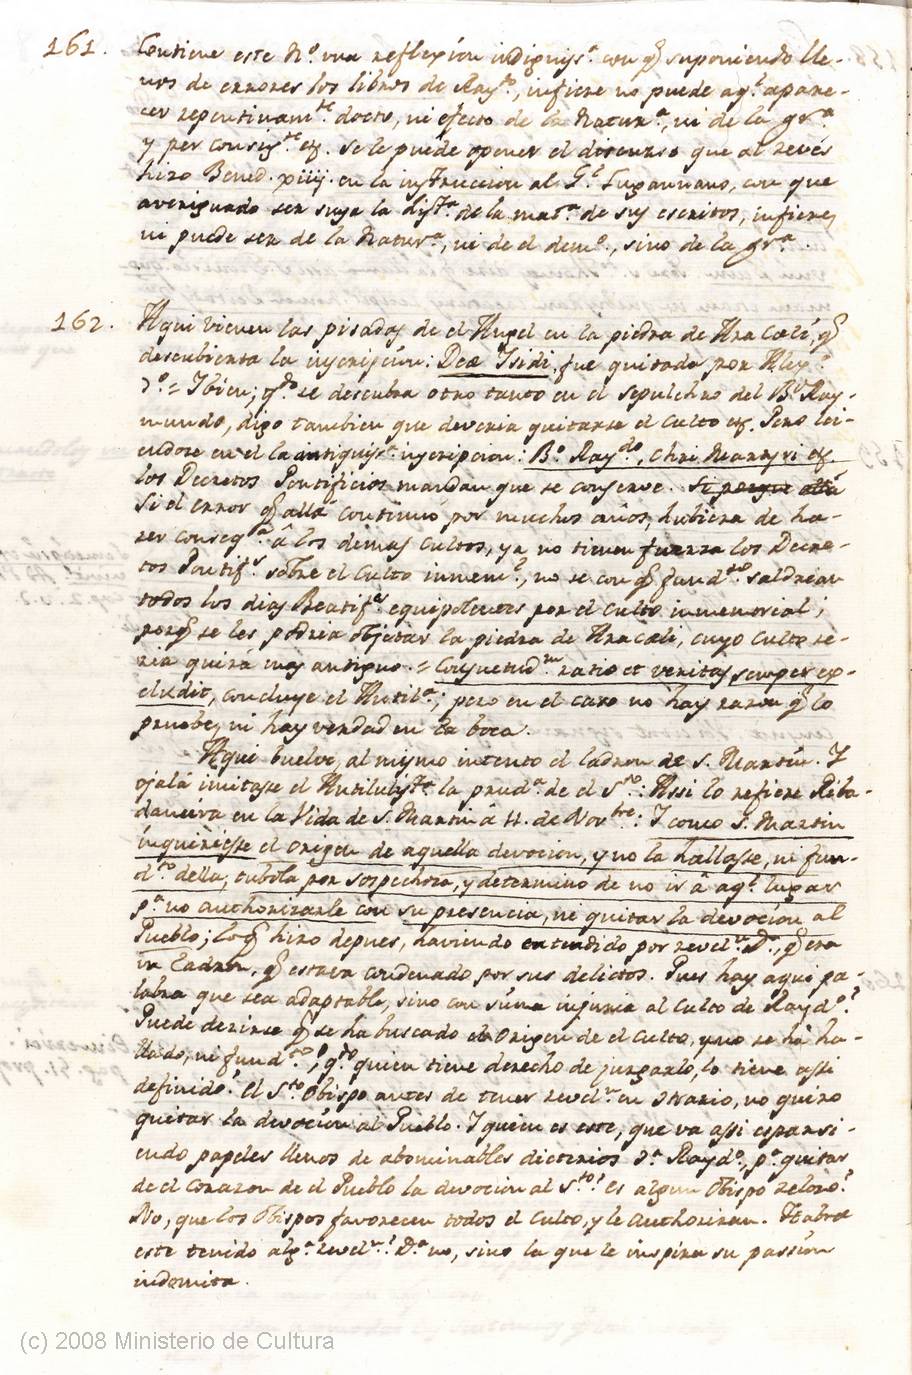 161. Contiene este N.º una reflexión indigniss.ª con q̃ suponiendo lle-
nos de errores los libros de Ray.do, infiere no puede aq.l apare-
cer repentinam.te docto, ni efecto de la Natur.ª, ni de la gr.ª
y per consig.te &. Se le puede oponer el discurso que al revés
hizo Bened. xiiij. en la instruccion al G.l Lugannano, con que
averiguado ser suya la dist.ª de la mat.ª de sus escritos, infiere,
ni puede ser de la Natur.ª, ni de el dem.º, sino de la gr.ª.
162. Aqui vienen las pisadas de el Angel en la piedra de Ara Cœli, q̃
descubierta la inscripción: Deæ Isidi, fue quitada por Alex.º
7.º = Ibien; q.do se descubra otro tanto en el sepulchro del B.º Ray-
mundo, digo tambien que deveria quitarse el culto &. Pero lei-
endose en el la antiquiss.ª inscripcion: B.º Ray.do, Chri Martyri &.
los Decretos Pontificios mandan que se conserve. Si porque allá
Si el error q̃ allá continuo por muchos años, hubiera de ha-
zer conseq.ª â los demas cultos, ya no tienen fuerza los Decre-
tos Pontif.s sobre el Culto inmem.l, no se con q̃ fund.to saldrian
todos los dias Beatif.s equipolentes por el culto inmemorial;
porq̃ se les podria objetar la piedra de Aracæli, cuyo culto se-
ria quizá mas antiguo. = Consuetud.m ratio et veritas semper ex-
cludit, concluye el Antil.ª; pero en el caso no hay razon q̃ lo
pruebe, ni hay verdad en la boca.
Aqui buelve, al mismo intento el ladron de S. Martin. Y
ojalá imitasse el Antilulista la prud.ª de el S.to: Assi lo refiere Riba-
daneira en la Vida de S. Martin á 11. de Nov.bre: Y como S. Martin
inquiriesse el origen de aquella devocion, y no la hallasse, ni fun-
d.to della, tubola por sospechosa, y determino de no ir â aq.l lugar
p.ª no authorizarle con su presencia, ni quitar la devocion al
Pueblo; lo q̃ hizo depues, haviendo entendido por revel.n D.ª, q̃ era
un Ladron, q̃ estava condenado por sus delictos. Pues hay aqui pa-
labra que sea adaptable, sino con súma injuria al culto de Rayd.º?
Puede dezirse q̃ se ha buscado el Origen de el culto, y no se há ha-
llado, ni fund.to?, q.do quien tiene derecho de juzgarlo, lo tiene assi
definido? el S.to Obispo antes de tener revel.n en contrario, no quizo
quitar la devoción al Pueblo. Y quien es este, que va assi esparsi-
endo papeles llenos de abominables dicterios c.ª Rayd.º, p.ª quitar
de el corazon de el Pueblo la devocion al S.to? es algun Obispo zeloso?
No, que los Obispos favorecen todos el culto, y le authorizan. Habrá
este tenido alg.ª revel.n? D.ª no, sino la que le inspira su passion
indomita.
(c) 2008 Ministerio de Cultura